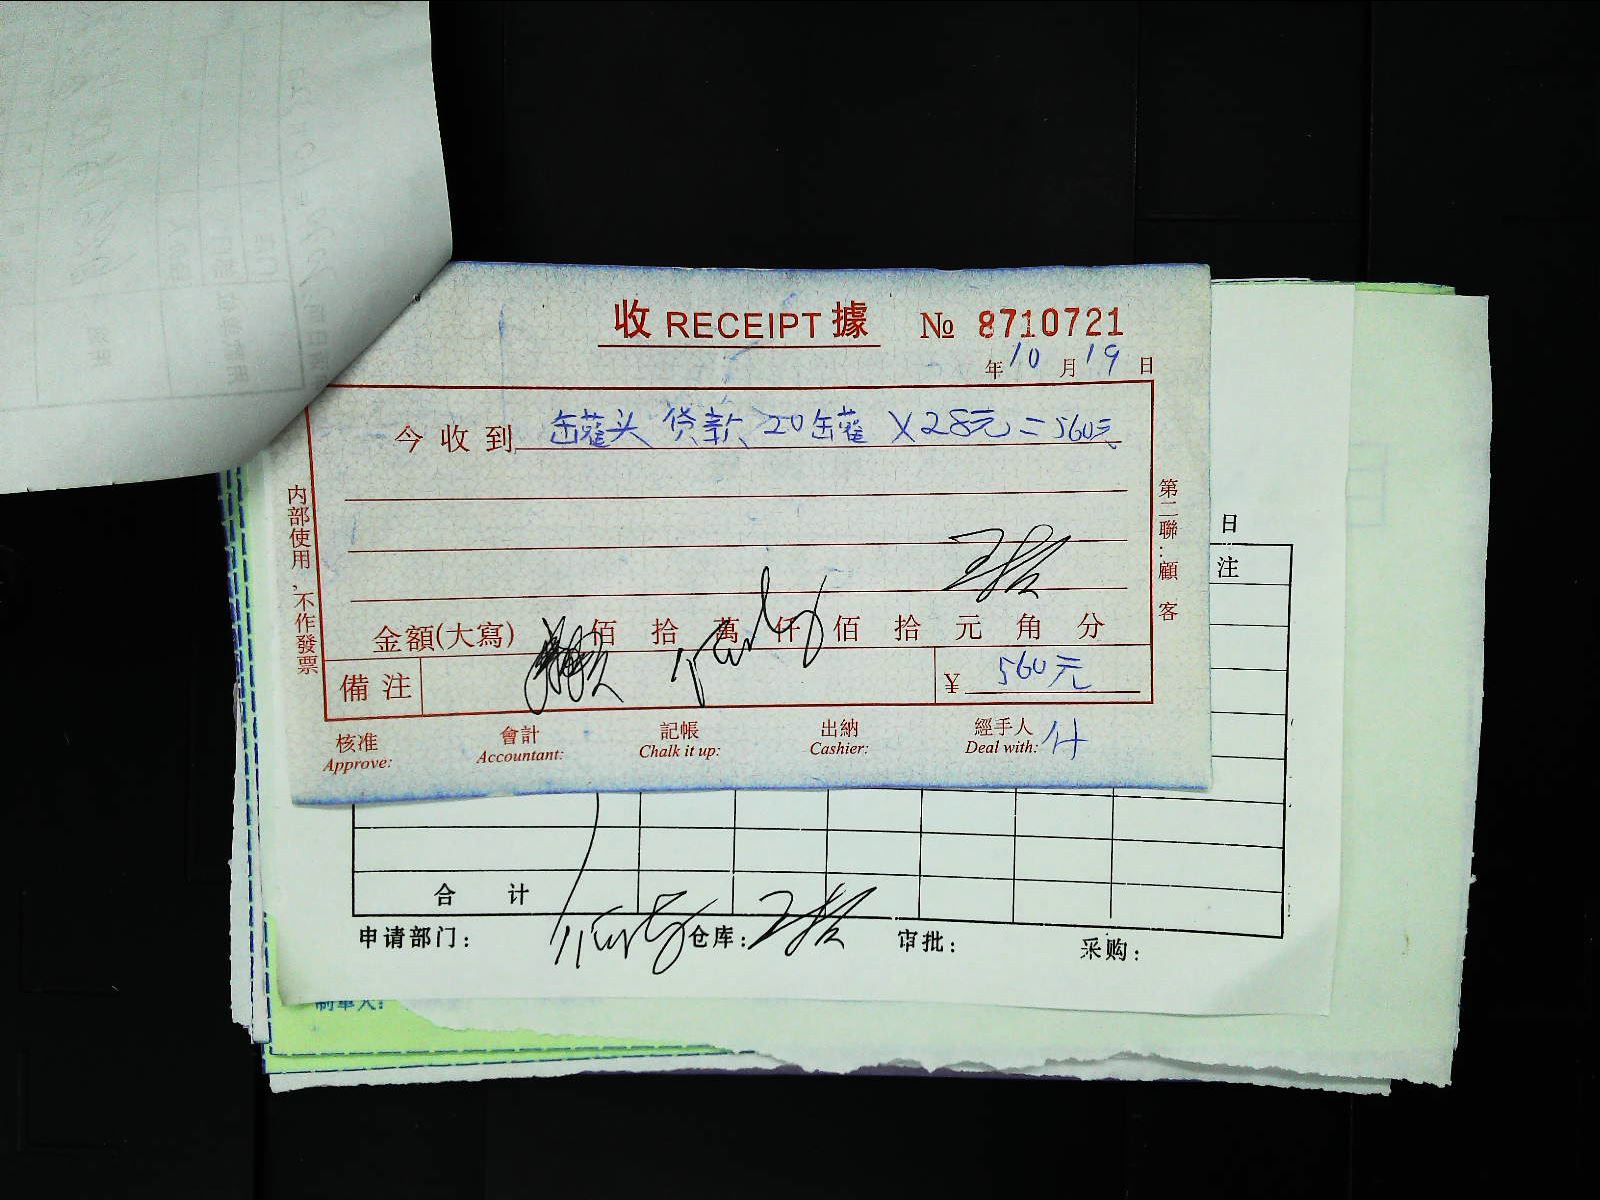 收 RECEIPT 據 № 8710721
年10月19日
今收到 罐头 货款 20罐 X28元=560元
内部使用，不作發票
第二聯：顧客
金額(大寫) 佰 拾 萬 仟 佰 拾 元 角 分
備注
¥ 560元
核准 會計 記帳 出納 經手人
Approve: Accountant: Chalk it up: Cashier: Deal with:
日
注
合 计
申请部门： 仓库： 审批： 采购：
制单人：